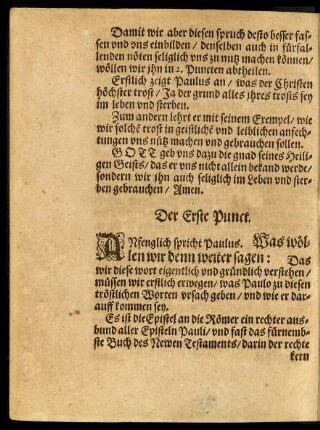 Damit wir aber diesen spruch desto besser fas-
sen vnd vns einbilden / denselben auch in fürfal-
lenden nöten seliglich vns zu nutz machen können/
wöllen wir jhn in 2. Puncten abtheilen.
Erstlich zeigt Paulus an / was der Christen
höchster trost / Ja der grund alles jhres trosts sey
im leben vnd sterben.
Zum andern lehrt er mit seinem Exempel / wie
wir solchē trost in geistlichē vnd leiblichen anfech-
tungen vns nütz machen vnd gebrauchen sollen.
GOTT geb vns dazu die gnad seines Heili-
gen Geists / das er vns nicht allein bekand werde/
sondern wir jhn auch seliglich im Leben vnd ster-
ben gebrauchen / Amen.
Der Erste Punct.
ANfenglich spricht Paulus. Was wöl-
len wir denn weiter sagen: Das
wir diese wort eigentlich vnd gründlich verstehen/
müssen wir erstlich erwegen / was Paulo zu diesen
tröstlichen Worten vrsach geben / vnd wie er dar-
auff kommen sey.
Es ist die Epistel an die Römer ein rechter aus-
bund aller Episteln Pauli / vnd fast das fürnemb-
ste Buch des Newen Testaments / darin der rechte
kern